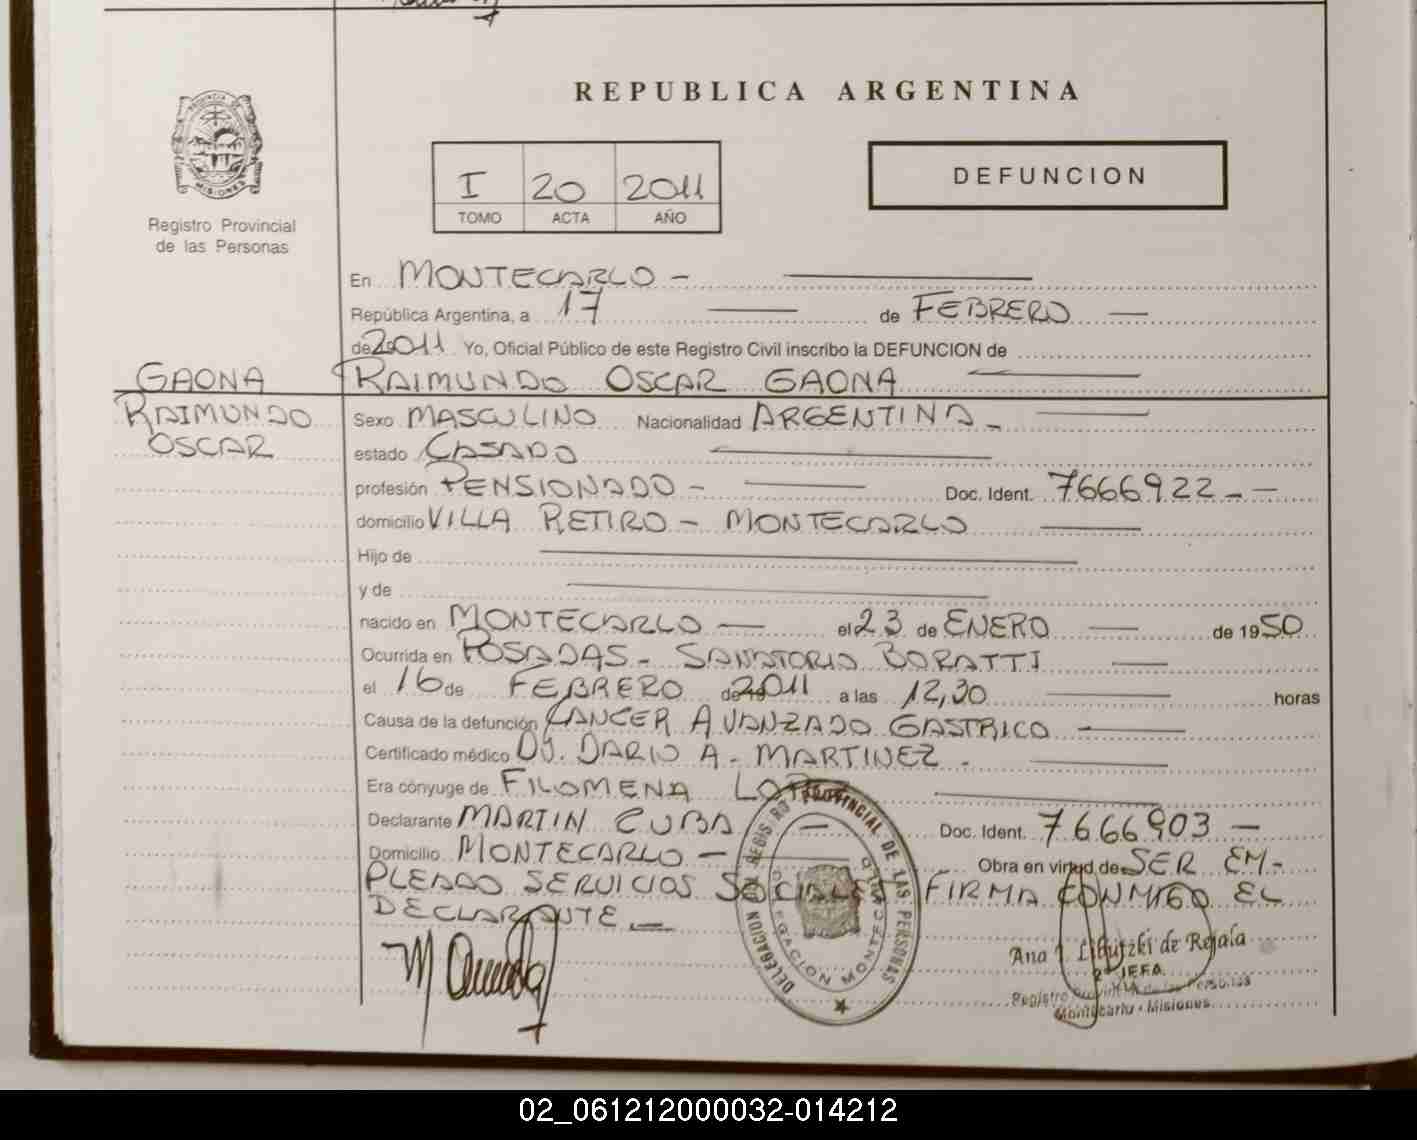 REPUBLICA ARGENTINA
PROVINCIA DE
MISIONES
Registro Provincial
de las Personas
I 20 2011
TOMO ACTA AÑO
DEFUNCION
En MONTECARLO -
República Argentina, a 17 de FEBRERO
de 2011 Yo, Oficial Público de este Registro Civil inscribo la DEFUNCION de
GAONA RAIMUNDO OSCAR GAONA
RAIMUNDO
OSCAR
Sexo MASCULINO Nacionalidad ARGENTINA -
estado CASADO
profesión PENSIONADO - Doc. Ident. 7666922 - -
domicilio VILLA RETIRO - MONTECARLO
Hijo de
y de
nacido en MONTECARLO - el 23 de ENERO de 1950
Ocurrida en POSADAS - SANATORIO BORATTI
el 16 de FEBRERO de 2011 a las 12,30 horas
Causa de la defunción CANCER AVANZADO GASTRICO
Certificado médico DR. DARIO A. MARTINEZ -
Era cónyuge de FILOMENA
Declarante MARTIN CUBA - Doc. Ident. 7666903 -
Domicilio MONTECARLO - Obra en virtud de SER EM-
PLEADO SERVICIOS SOCIALES FIRMA CONMIGO EL
DECLARANTE -
DELEGACION REGISTRO PROVINCIAL DE LAS PERSONAS
MONTECARLO
Ana de Rejala
JEFA
Registro de las Personas
Montecarlo - Misiones
02_061212000032-014212